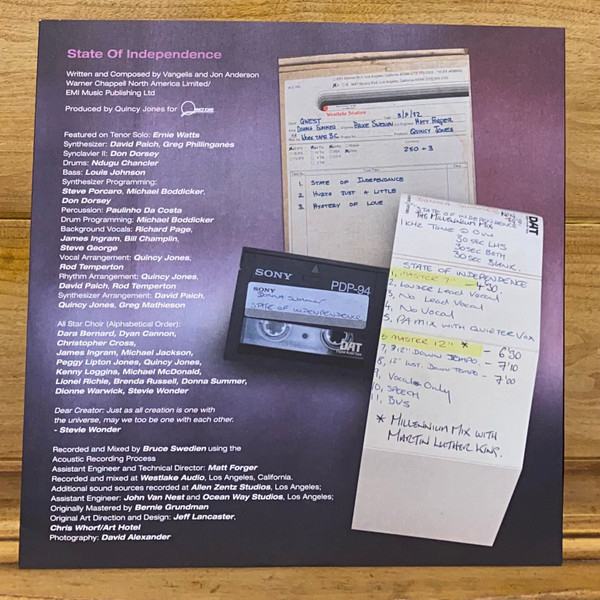 State Of Independence
Written and Composed by Vangelis and Jon Anderson
Warner Chappell North America Limited/
EMI Music Publishing Ltd
Produced by Quincy Jones for
Featured on Tenor Solo: Ernie Watts
Synthesizer: David Paich, Greg Phillinganes
Synclavier II: Don Dorsey
Drums: Ndugu Chancler
Bass: Louis Johnson
Synthesizer Programming:
Steve Porcaro, Michael Boddicker,
Don Dorsey
Percussion: Paulinho Da Costa
Drum Programming: Michael Boddicker
Background Vocals: Richard Page,
James Ingram, Bill Champlin,
Steve George
Vocal Arrangement: Quincy Jones,
Rod Temperton
Rhythm Arrangement: Quincy Jones,
David Paich, Rod Temperton
Synthesizer Arrangement: David Paich,
Quincy Jones, Greg Mathieson
All Star Choir (Alphabetical Order):
Dara Bernard, Dyan Cannon,
Christopher Cross,
James Ingram, Michael Jackson,
Peggy Lipton Jones, Quincy Jones,
Kenny Loggins, Michael McDonald,
Lionel Richie, Brenda Russell, Donna Summer,
Dionne Warwick, Stevie Wonder
Dear Creator: Just as all creation is one with
the universe, may we too be one with each other.
- Stevie Wonder
Recorded and Mixed by Bruce Swedien using the
Acoustic Recording Process
Assistant Engineer and Technical Director: Matt Forger
Recorded and mixed at Westlake Audio, Los Angeles, California.
Additional sound sources recorded at Allen Zentz Studios, Los Angeles;
Assistant Engineer: John Van Nest and Ocean Way Studios, Los Angeles;
Originally Mastered by Bernie Grundman
Original Art Direction and Design: Jeff Lancaster,
Chris Whorf/Art Hotel
Photography: David Alexander
Westlake Studios
QWEST
3/8/82
DONNA SUMMER
BRUCE SWEDIEN
MATT FORGER
WORK TAPE
QUINCY JONES
250 + 3
1. STATE OF INDEPENDANCE
2. HURTS JUST A LITTLE
3. MYSTERY OF LOVE
SONY
PDP-94
SONY
DONNA SUMMER
STATE OF INDEPENDENCE
DAT
DAT
STATE OF INDEPENDENCE
THE MILLENNIUM MIX
1KHZ TONE @ OVU
30 SEC LHS
30 SEC BOTH
30 SEC BLANK.
STATE OF INDEPENDENCE
1, MASTER 7" - 4'30
2, LOWER LEAD VOCAL
3, NO LEAD VOCAL
4, NO VOCAL
5, PA MIX WITH QUIETER VOX
6 MASTER 12" * - 6'30
7, 12" DOWN TEMPO - 7'10
8, 12" INST. DOWN TEMPO - 7'00
9, VOCAL ONLY
10, SPEECH
11, BVS
* MILLENNIUM MIX WITH
MARTIN LUTHER KING.